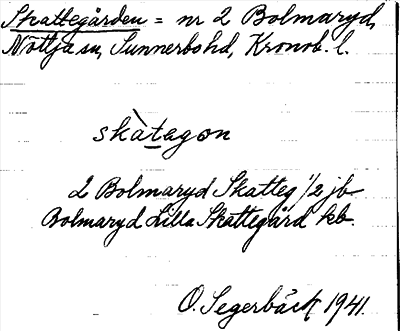 Skattegården = nr 2 Bolmaryd,
Nöttja sn, Sunnerbo hd, Kronob. l.
skàtegon
2 Bolmaryd Skatteg 1/2 jb
Bolmaryd Lilla Skattegård kb.
O. Segerbäck 1941.